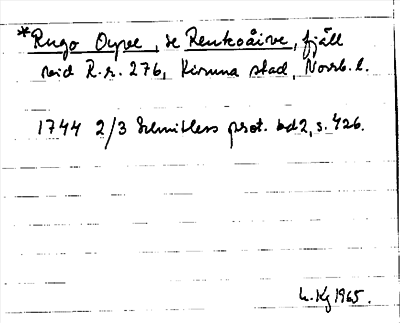 *Rugo Oyve, se Renkoåive, fjäll
vid R.r. 276, Kiruna stad, Norrb. l.
1744 2/3 Schnitlers prot. bd 2, s. 426.
h. Kg 1965.